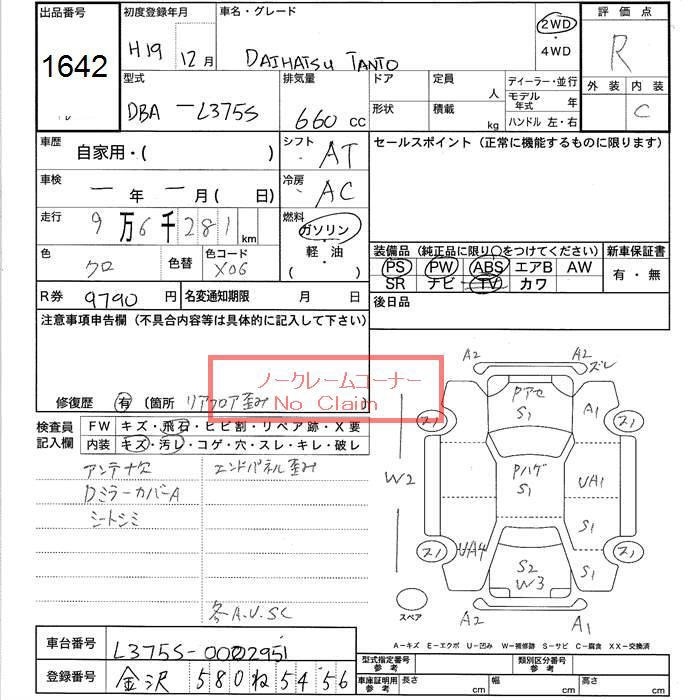 出品番号
1642
初度登録年月
H19 12月
車名・グレード
DAIHATSU TANTO
2WD
・
4WD
評価点
R
外装 内装
C
型式
DBA-L375S
排気量
660 cc
ドア
形状
定員
人
積載
kg
ディーラー・並行
モデル年式 年
ハンドル 左・右
車歴
自家用・( )
シフト
AT
セールスポイント（正常に機能するものに限ります）
車検
一年一月( 日)
冷房
AC
走行
9万6千281km
燃料
ガソリン
・
軽・油
( )
色
クロ
色替
色コード
X06
装備品（純正品に限り○をつけてください）
PS PW ABS エアB AW
SR ナビ TV カワ
新車保証書
有・無
R券 9790円
名変通知期限 月 日
後日品
注意事項申告欄（不具合内容等は具体的に記入して下さい）
ノークレームコーナー
No Claim
修復歴 有 〔箇所 リアフロア歪み 〕
検査員記入欄
FW キズ・飛石・ヒビ割・リペア跡・X要
内装 キズ・汚レ・コゲ・穴・スレ・キレ・破レ
アンテナ欠
エンドパネル歪み
DミラーカバーA
シートシミ
各A.U.SC
A2
A2
ズレ
Pアセ
S1
A1
ス1
ス1
W2
Pハゲ
S1
UA1
S1
ス1
ス1
UA4
S2
W3
S1
スペア
A2
A1
A-キズ E-エクボ U-凹み W-補修跡 S-サビ C-腐食 XX-交換済
車台番号
L375S-0002951
登録番号
金沢 580 ね 5456
型式指定番号
参考
類別区分番号
参考
車庫証明用
参考
長さ
cm
幅
cm
高さ
cm